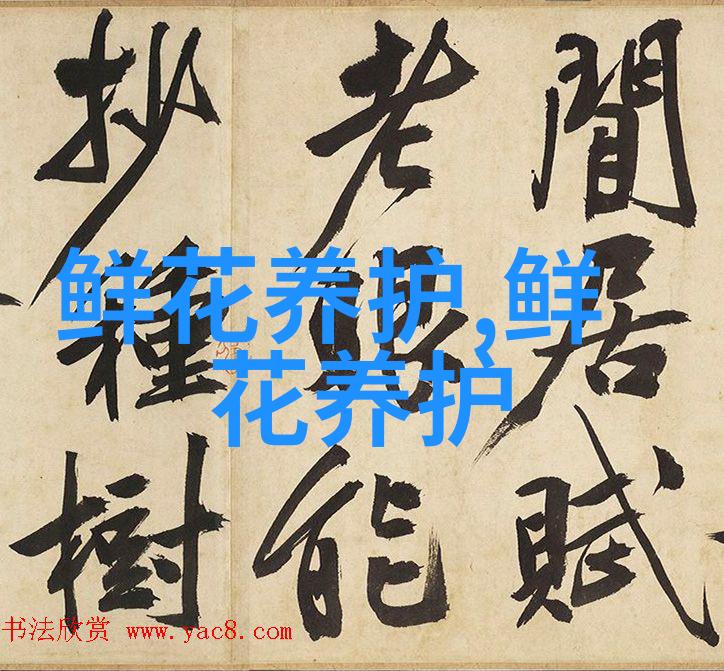 閒居賦
老能
抄種樹
鲜花养护,鲜
花养护
书法欣赏 www.yac8.com